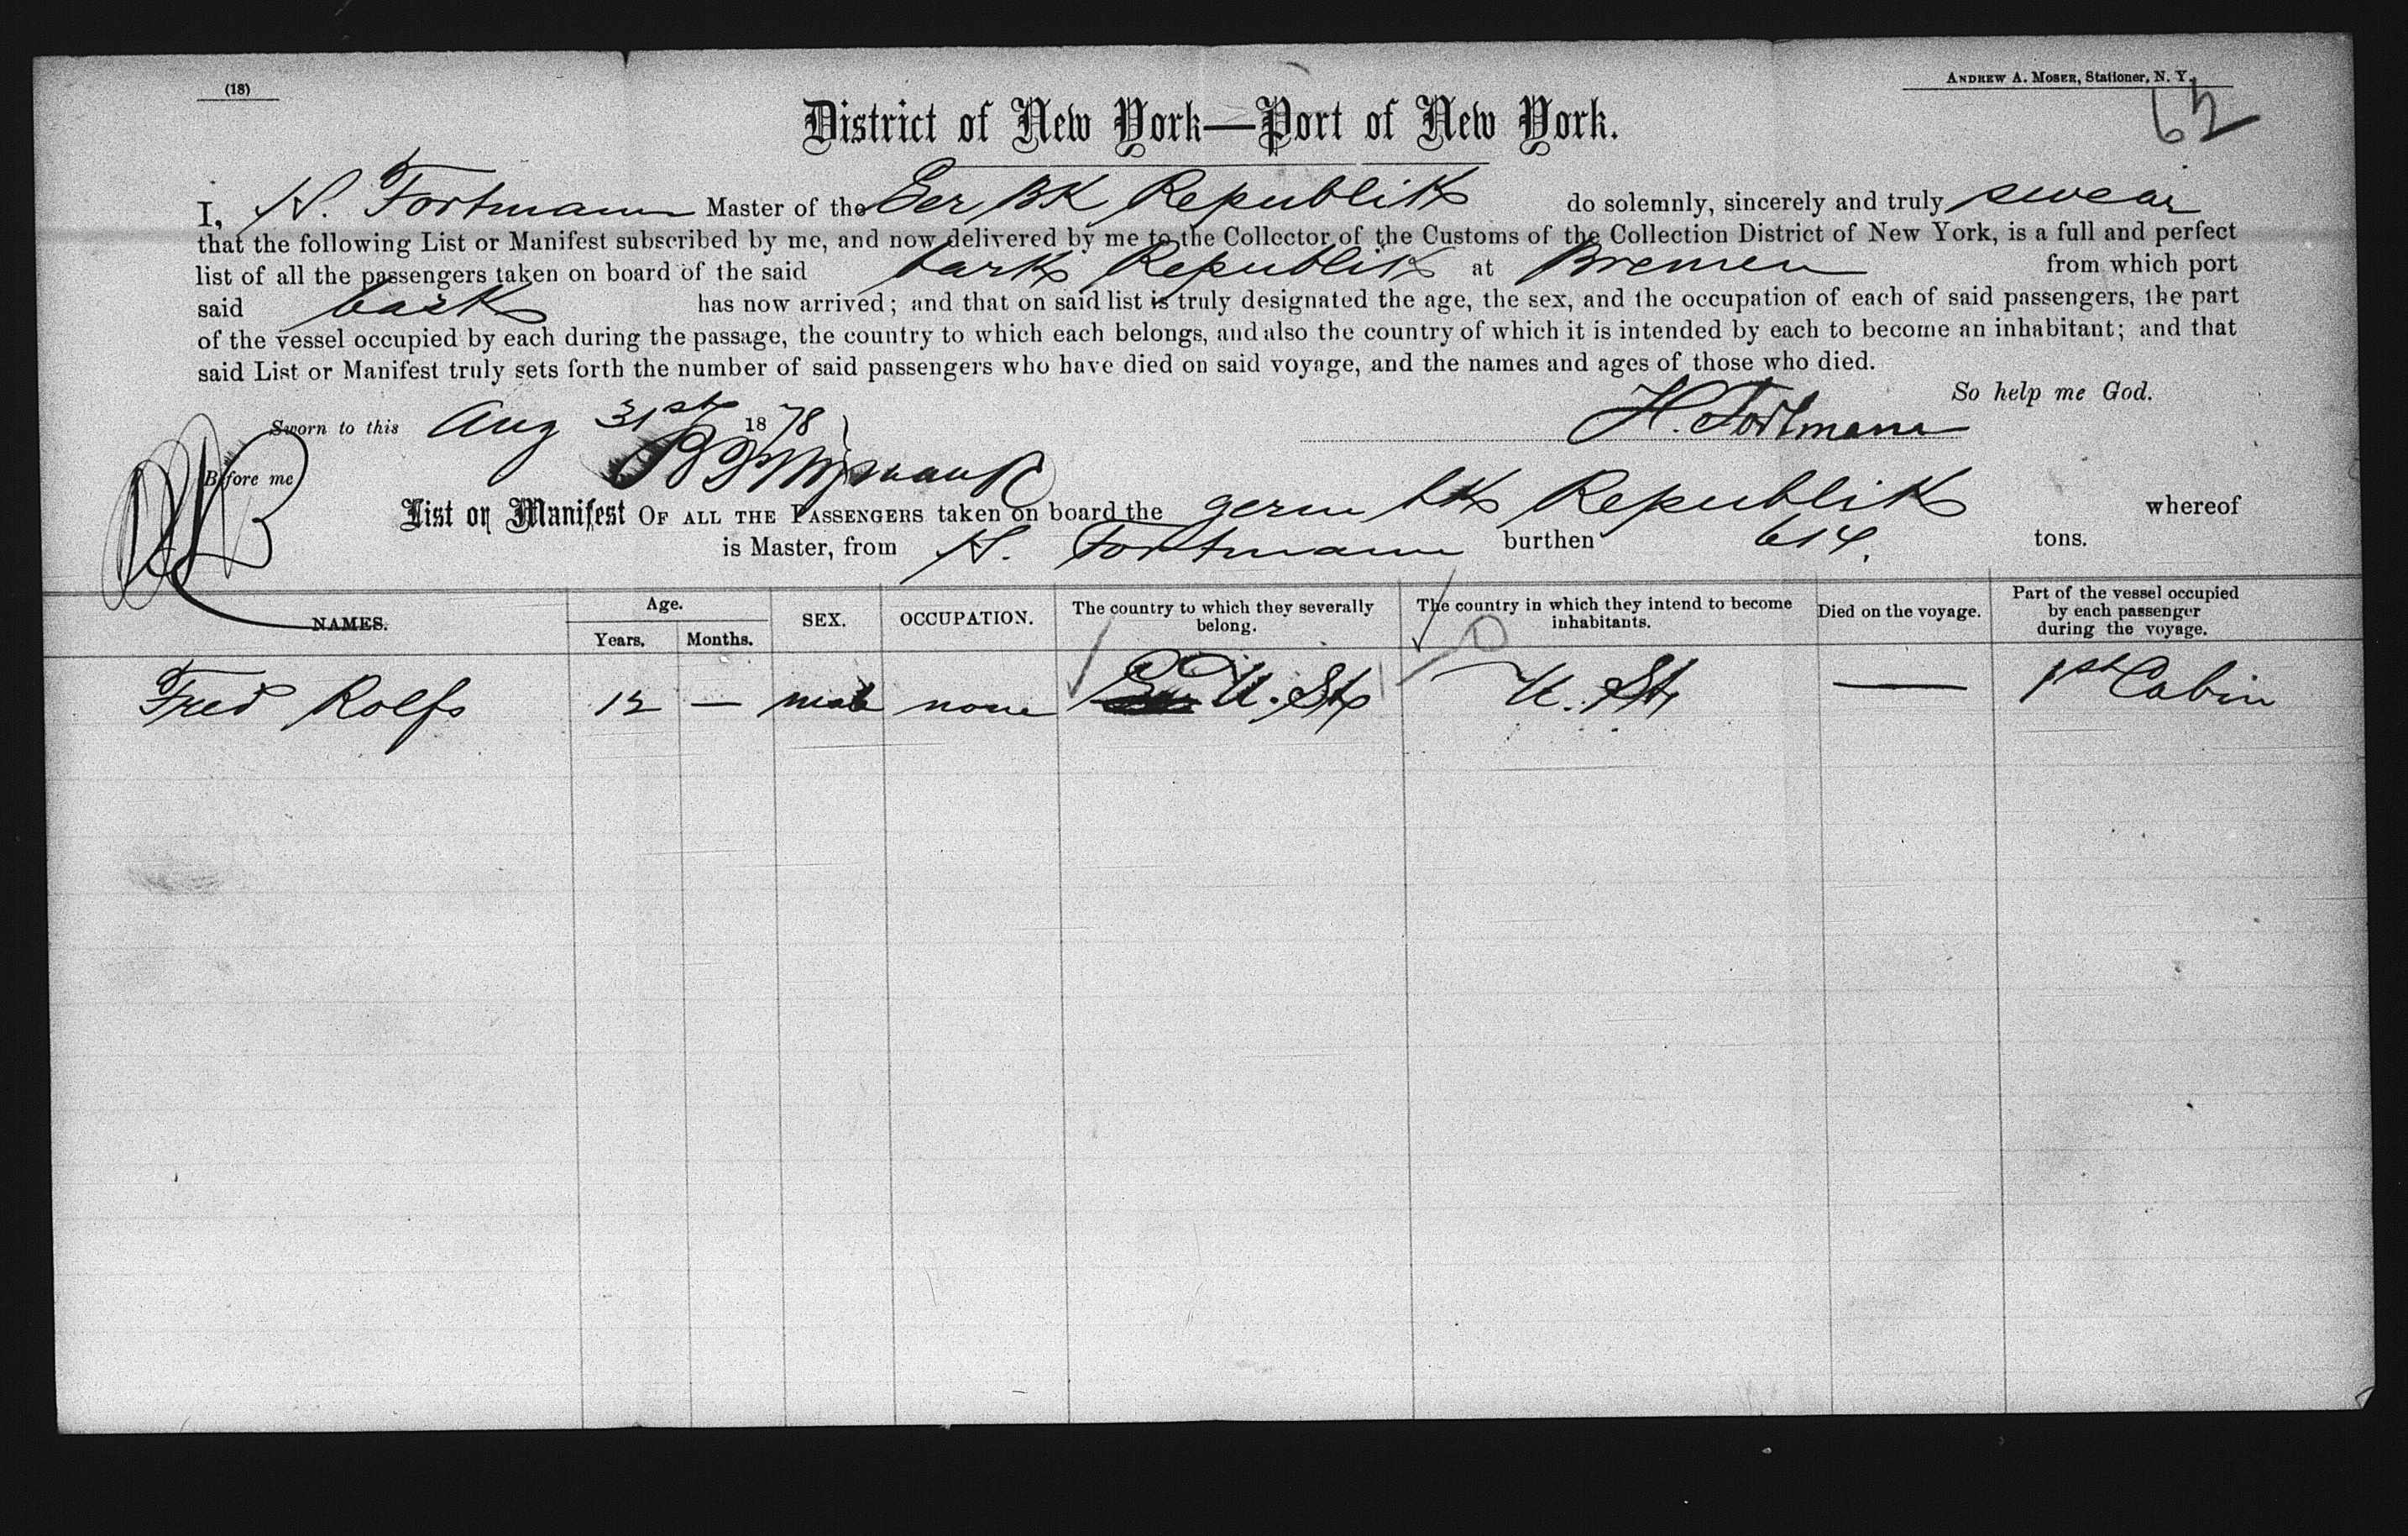 (18)
ANDREW A. MOSER, Stationer, N. Y.
62
District of New York—Port of New York.
I, H. Fortmann Master of the Ger BK Republik do solemnly, sincerely and truly swear
that the following List or Manifest subscribed by me, and now delivered by me to the Collector of the Customs of the Collection District of New York, is a full and perfect
list of all the passengers taken on board of the said bark Republik at Bremen from which port
said bark has now arrived; and that on said list is truly designated the age, the sex, and the occupation of each of said passengers, the part
of the vessel occupied by each during the passage, the country to which each belongs, and also the country of which it is intended by each to become an inhabitant; and that
said List or Manifest truly sets forth the number of said passengers who have died on said voyage, and the names and ages of those who died.
So help me God.
Sworn to this Aug 31st 1878 H. Fortmann
Before me
List or Manifest OF ALL THE PASSENGERS taken on board the germ bk Republik whereof
is Master, from H. Fortmann burthen 614. tons.
NAMES. Age. Years. Months. SEX. OCCUPATION. The country to which they severally belong. The country in which they intend to become inhabitants. Died on the voyage. Part of the vessel occupied by each passenger during the voyage.
Fred Rolfs 12 — male none U. St U. St — 1st Cabin